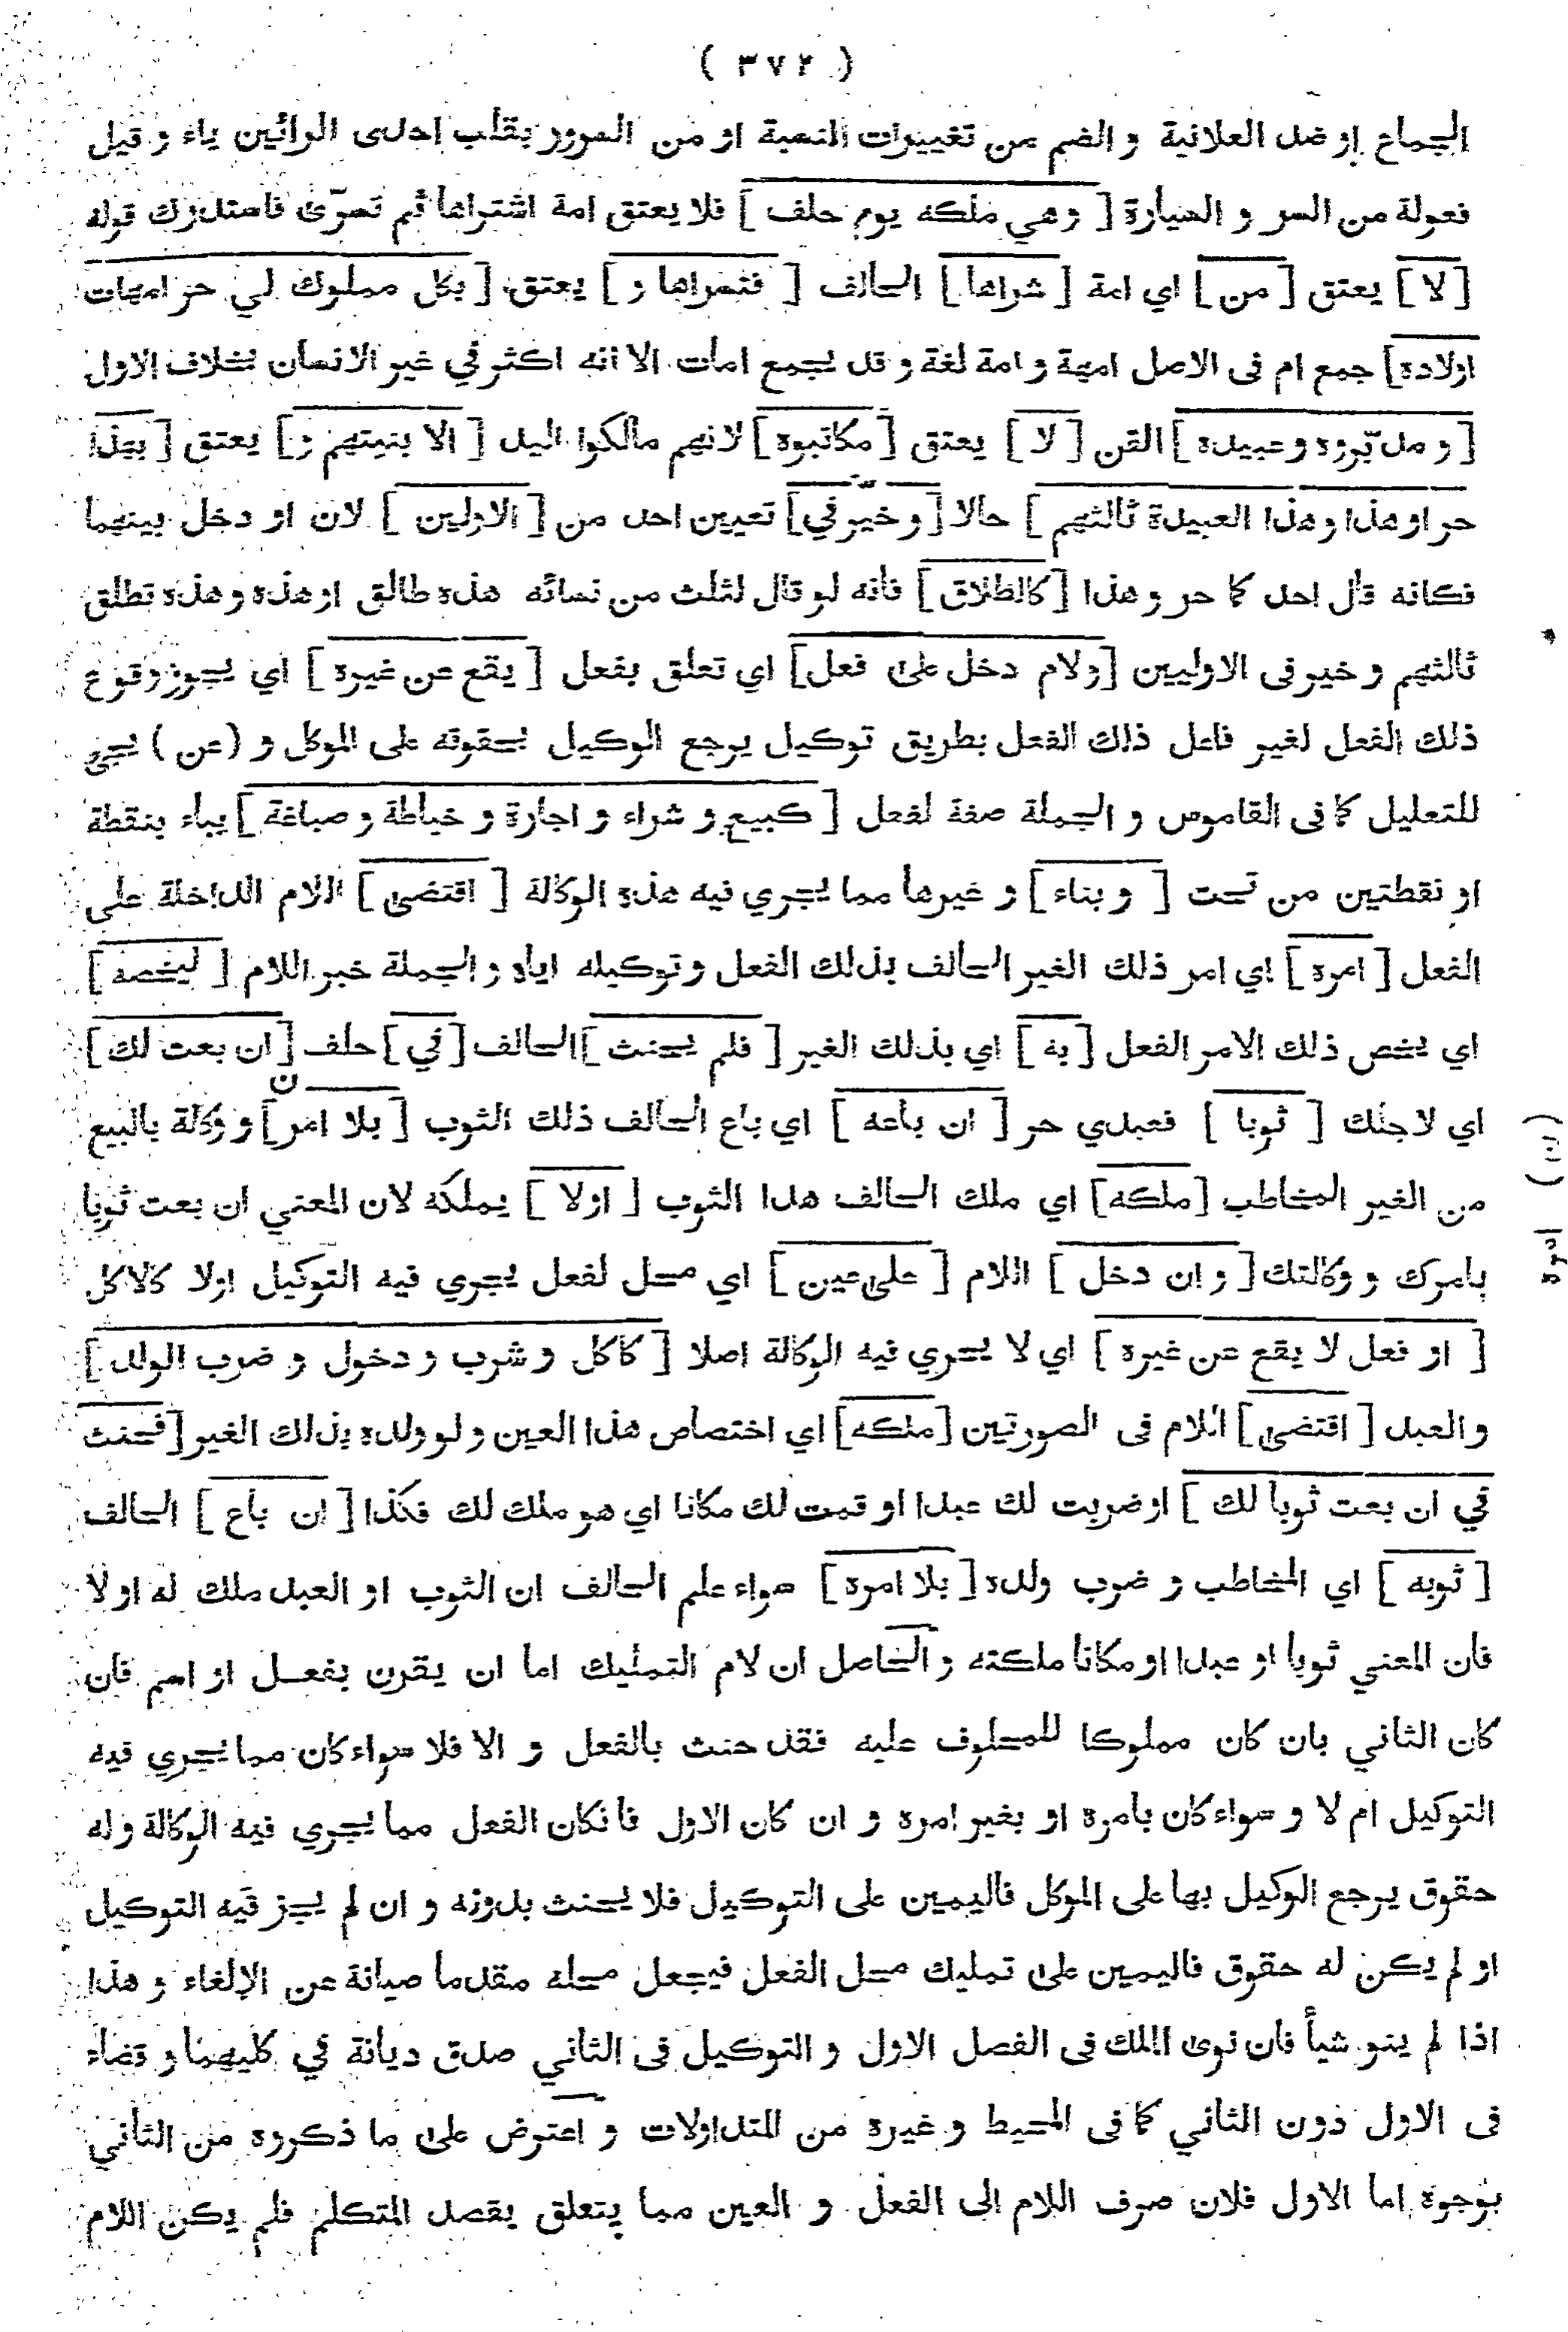 ( ٣٧٢ )
الجماع او ضد العلانية و الضم من تغييرات النسبة او من السرور بقلب احدى الرائين ياء و قيل
فعولة من السر و السيارة [ و هي ملكه يوم حلف ] فلا يعتق امة اشتراها ثم تسرّى فاستدرك قوله
[ لا ] يعتق [ من ] اي امة [ شراها ] الحالف [ فتسراها و ] يعتق [ بكل مملوك لي حر امهات
اولاده] جمع ام فى الاصل امهة و امة لغة و قد يجمع امات الا انه اكثر في غير الانسان بخلاف الاول
[ و مدبّروه و عبيده ] القن [ لا ] يعتق [ مكاتبوه ] لانهم مالكوا اليد [ الا بنيتهم و ] يعتق [ بهذا
حر او هذا و هذا العبيده ثالثهم ] حالا [ و خيّر في ] تعيين احد من [ الاولين ] لان او دخل بينهما
فكانه قال احد كما حر و هذا [ كالطلاق ] فانه لو قال لثلث من نسائه هذه طالق او هذه و هذه تطلق
ثالثهم و خير فى الاوليين [ و لام دخل على فعل ] اي تعلق بفعل [ يقع عن غيره ] اي يجوز وقوع
ذلك الفعل لغير فاعل ذلك الفعل بطريق توكيل يرجع الوكيل بحقوقه على الموكل و (عن) يجي
للتعليل كما فى القاموس و الجملة صفة لفعل [ كبيع و شراء و اجارة و خياطة و صباغة ] بباء بنقطة
او نقطتين من تحت [ و بناء ] و غيرها مما يجري فيه هذه الوكالة [ اقتضى ] اللام الداخلة على
الفعل [ امره ] اي امر ذلك الغير الحالف بذلك الفعل و توكيله اياه و الجملة خبر اللام [ ليخصه ]
اي يخص ذلك الامر الفعل [ به ] اي بذلك الغير [ فلم يحنث ] الحالف [ في ] حلف [ ان بعت لك ]
اي لاجلك [ ثوبا ] فعبدي حر [ ان باعه ] اي باع الحالف ذلك الثوب [ بلا امر ] ن و وكالة بالبيع
من الغير المخاطب [ ملكه ] اي ملك الحالف هذا الثوب [ اولا ] يملكه لان المعني ان بعت ثوبا
بامرك و وكالتك [ و ان دخل ] اللام [ على عين ] اي محل لفعل يجري فيه التوكيل اولا كالاكل
[ او فعل لا يقع عن غيره ] اي لا يجري فيه الوكالة اصلا [ كاكل و شرب و دخول و ضرب الولد ]
و العبد [ اقتضى ] اللام فى الصورتين [ ملكه ] اي اختصاص هذا العين و لو ولده بذلك الغير [ فحنث
في ان بعت ثوبا لك ] او ضربت لك عبدا او قمت لك مكانا اي هو ملك لك فكذا [ ان باع ] الحالف
[ ثوبه ] اي المخاطب و ضرب ولده [ بلا امره ] سواء علم الحالف ان الثوب او العبد ملك له او لا
فان المعني ثوبا او عبدا او مكانا ملكته و الحاصل ان لام التمليك اما ان يقرن بفعل او اسم فان
كان الثاني بان كان مملوكا للمحلوف عليه فقد حنث بالفعل و الا فلا سواء كان مما يجري فيه
التوكيل ام لا و سواء كان بامره او بغير امره و ان كان الاول فانكان الفعل مما يجري فيه الوكالة و له
حقوق يرجع الوكيل بها على الموكل فاليمين على التوكيل فلا يحنث بدونه و ان لم يجز فيه التوكيل
او لم يكن له حقوق فاليمين على تمليك محل الفعل فيجعل محله مقدما صيانة عن الالغاء و هذا
اذا لم ينو شيأ فان نوى الملك فى الفصل الاول و التوكيل فى الثاني صدق ديانة في كليهما و قضاء
فى الاول دون الثاني كما فى المحيط و غيره من المتداولات و اعترض على ما ذكروه من الثاني
بوجوه اما الاول فلان صرف اللام الى الفعل و العين مما يتعلق بقصد المتكلم فلم يكن اللام
(ن) امره